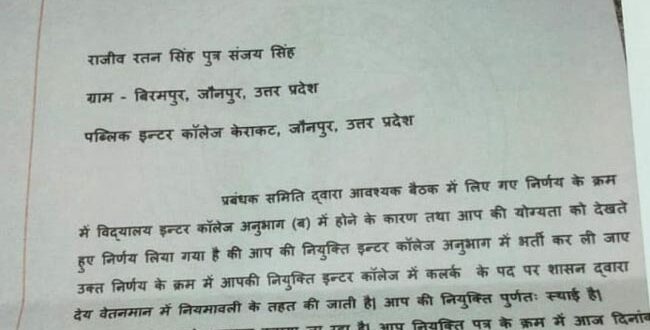 राजीव रतन सिंह पुत्र संजय सिंह
ग्राम - बिरमपुर, जौनपुर, उत्तर प्रदेश
पब्लिक इन्टर कॉलेज केराकट, जौनपुर, उत्तर प्रदेश
प्रबंधक समिति द्वारा आवश्यक बैठक में लिए गए निर्णय के क्रम
में विद्यालय इन्टर कॉलेज अनुभाग (ब) में होने के कारण तथा आप की योग्यता को देखते
हुए निर्णय लिया गया है की आप की नियुक्ति इन्टर कॉलेज अनुभाग में भर्ती कर ली जाए
उक्त निर्णय के क्रम में आपकी नियुक्ति इन्टर कॉलेज में कलर्क के पद पर शासन द्वारा
देय वेतनमान में नियमावली के तहत की जाती है| आप की नियुक्ति पुर्णतः स्थाई है|
जा रहा है| आप नियुक्ति पत्र के क्रम में आज दिनांक